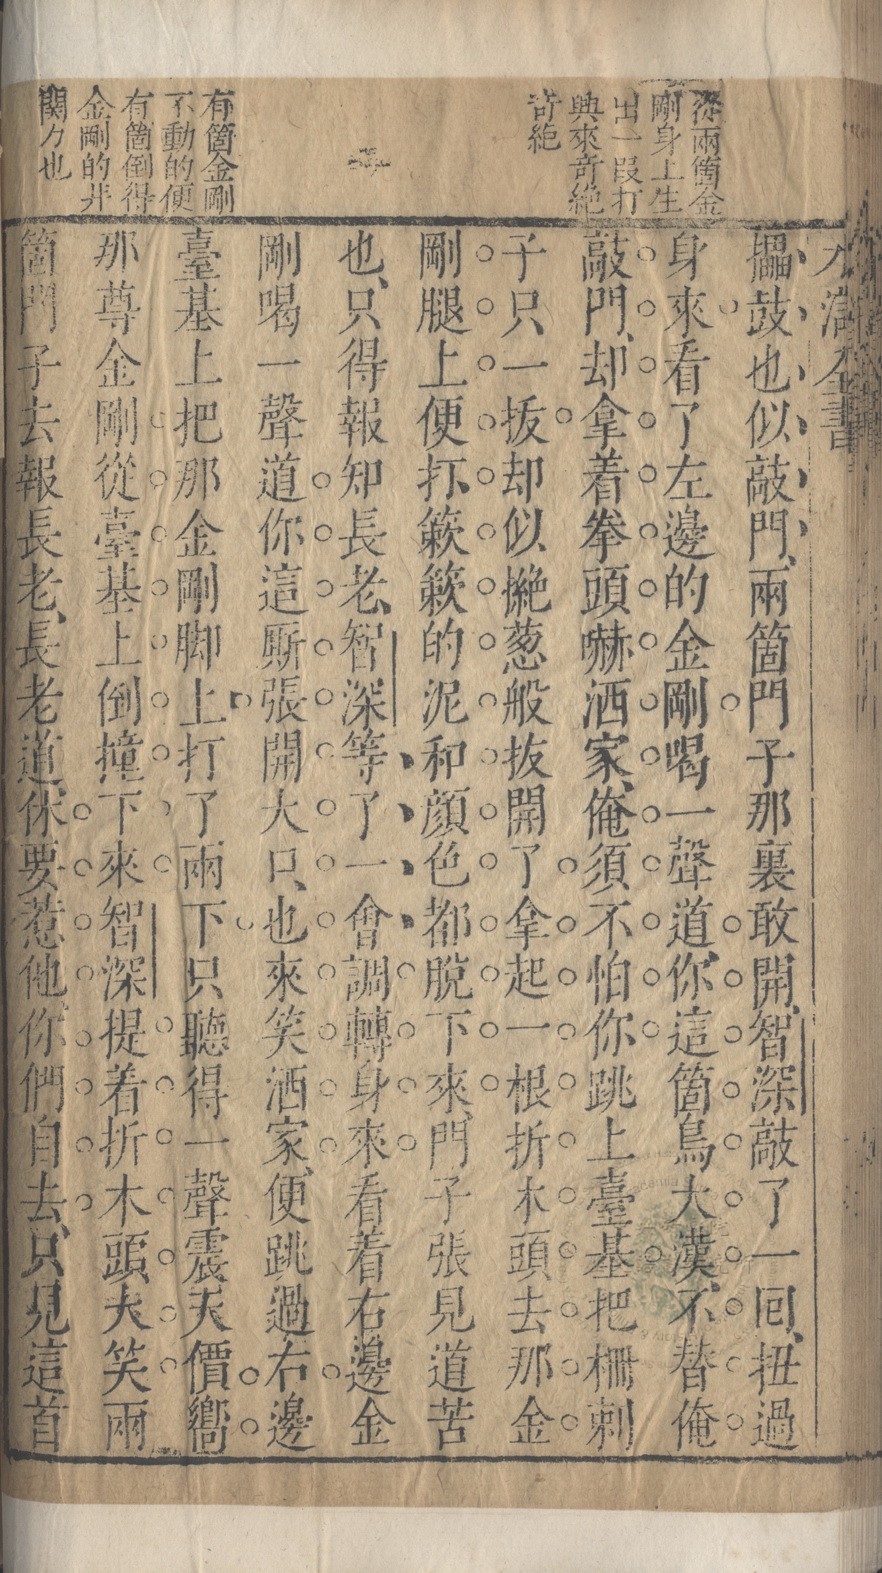 水滸全書
從兩箇金
剛身上生
出一段打
與來奇絕
奇絕
有箇金剛
不動的便
有箇倒得
金剛的井
關々也
擂鼓也似敲門、兩箇門子那裏敢開、智深敲了一囘、扭過
身來看了左邊的金剛喝一聲道、你這箇鳥大漢、不替俺
敲門、却拿着拳頭嚇洒家、俺須不怕你跳上臺基把柵剌
子只一扳却似撧葱般扳開了拿起一根折木頭去那金
剛腿上便打、簌簌的泥和顔色都脫下來、門子張見道苦
也、只得報知長老、智深等了一會調轉身來看着右邊金
剛喝一聲道你這厮張開大口、也來笑洒家、便跳過右邊
臺基上把那金剛脚上打了兩下只聽得一聲震天價嚮
那尊金剛從臺基上倒撞下來智深提着折木頭大笑兩
箇門子去報長老、長老道、休要惹他你們自去、只見這首